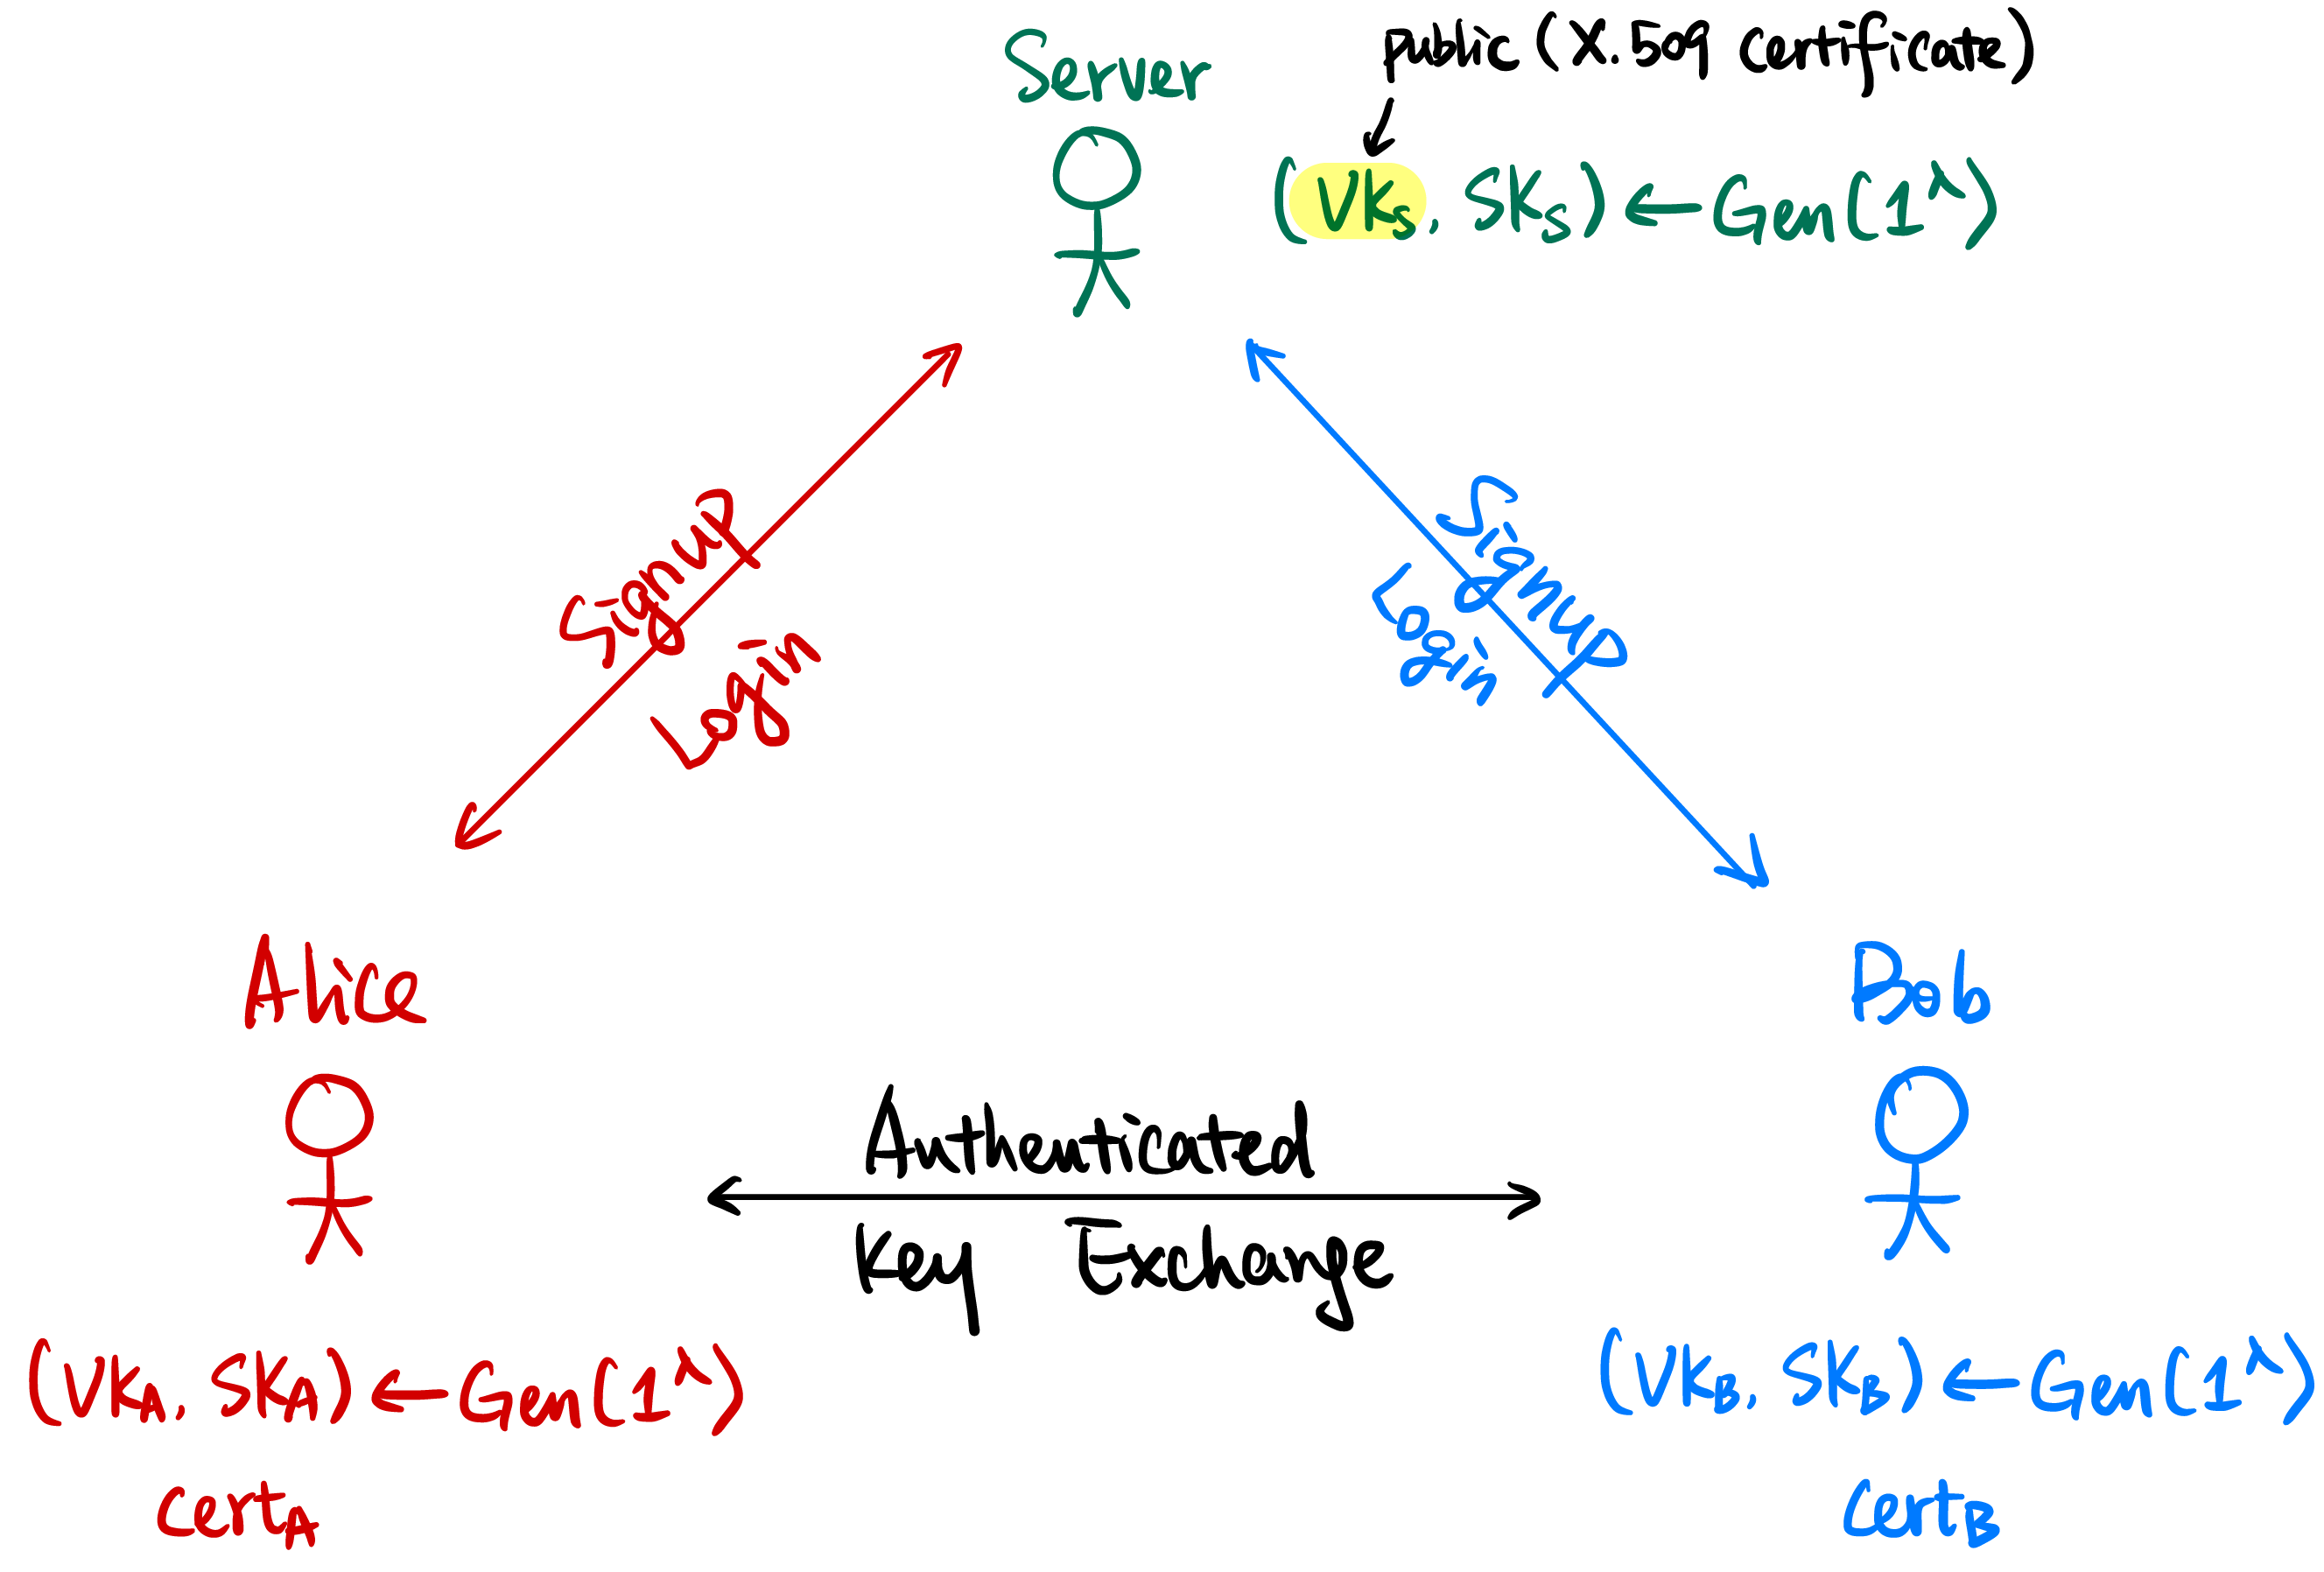 Server
public (X.509 certificate)
(Vks, SKs) ← Gen(1^λ)
SignUP
Login
SignUP
Login
Alice
Bob
Authenticated
Key Exchange
(VkA, SKA) ← Gen(1^λ)
(VkB, SKB) ← Gen(1^λ)
CertA
CertB